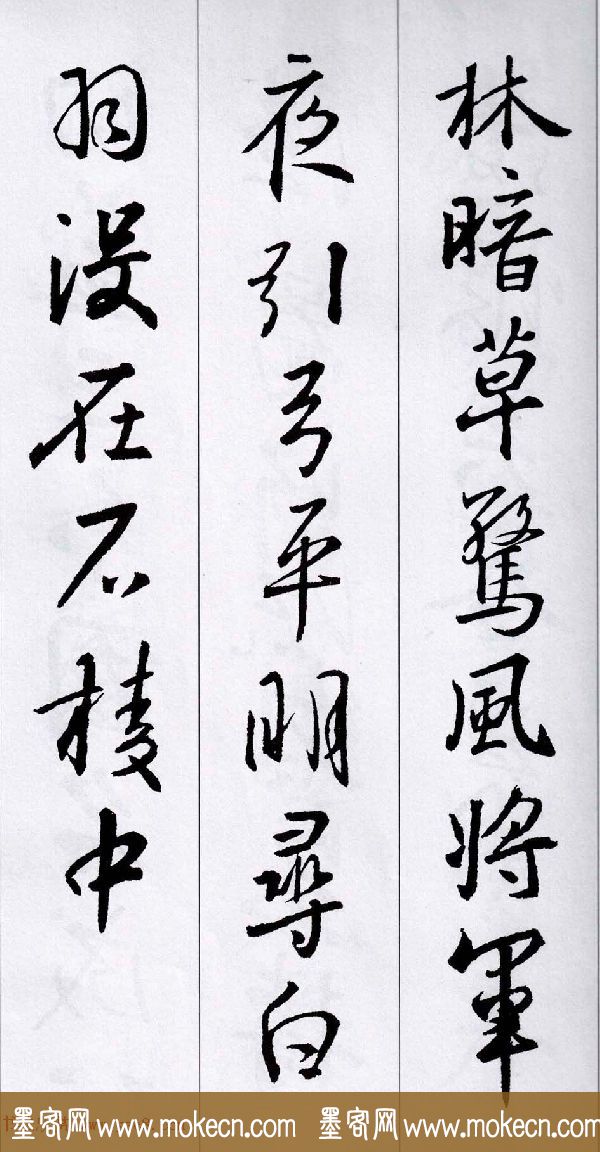 林暗草驚風将軍
夜引弓平明尋白
羽没在石棱中
墨客网 www.mokecn.com 墨客网 www.mokecn.com